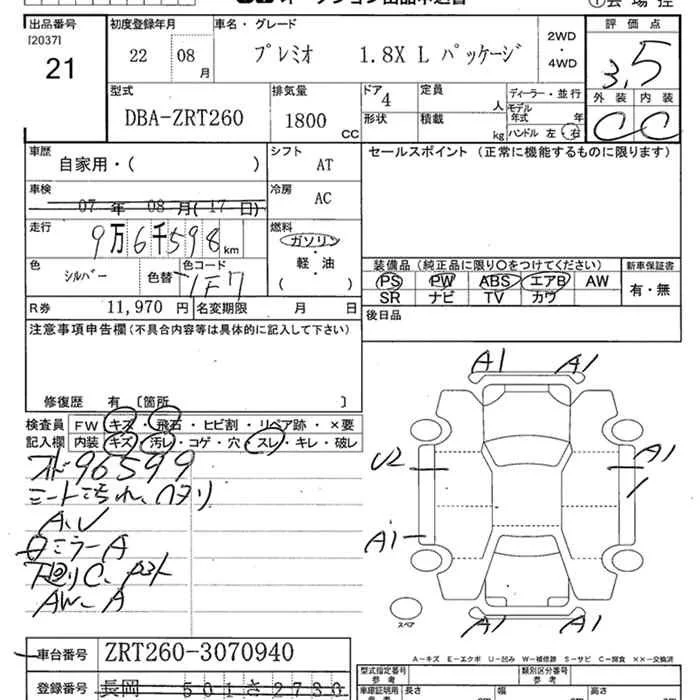 出品番号 初度登録年月 車名・グレード 評価点
[2037] 21 22 08月 プレミオ 1.8X L パッケージ 2WD・4WD 3.5
型式 DBA-ZRT260 排気量 1800CC ドア4 形状 定員 人 積載 kg ディーラー・並行 モデル年式 年 ハンドル 左・右 外装 C 内装 C
車歴 自家用・( ) シフト AT セールスポイント (正常に機能するものに限ります)
車検 07年08月(17日) 冷房 AC
走行 9万6千598km 燃料 ガソリン 軽・油 ( )
色 シルバー 色替 色コード 1F7 装備品 (純正品に限り○をつけてください) 新車保証書
PS PW ABS エアB AW 有・無
SR ナビ TV カワ
R券 11,970円 名変期限 月 日 後日品
注意事項申告欄(不具合内容等は具体的に記入して下さい)
修復歴 有 [箇所 ]
検査員記入欄 FW キズ・飛石・ヒビ割・リペア跡・×要
内装 キズ・汚レ・コゲ・穴・スレ・キレ・破レ
96599
A、U
ミラーA
下廻りC
AW-A
A1 A1
U2 A1
A1
A1 A1
スペア
A-キズ E-エクボ U-凹み W-補修跡 S-サビ C-腐食 ××-交換済
車台番号 ZRT260-3070940
登録番号 長岡 501さ2730
型式指定番号 参考 類別区分番号 参考
車庫証明用 長さ 幅 高さ